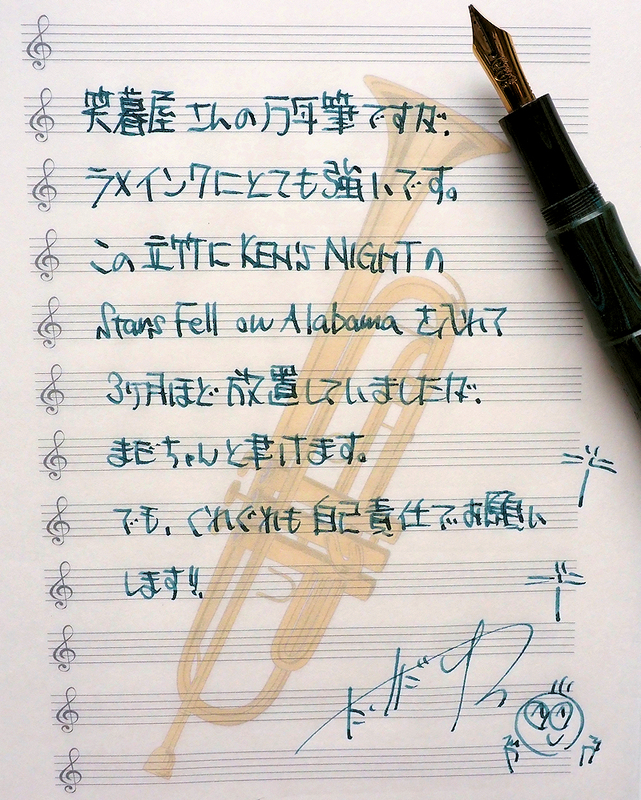 笑暮屋さんの万年筆ですが.
ラメインクにとても強いです。
この立竹にKEN'S NIGHTの
Stars Fell on Alabama を入れて
3ヶ月ほど放置していましたが.
まだちゃんと書けます。
でも、くれぐれも自己責任でお願い
します!!